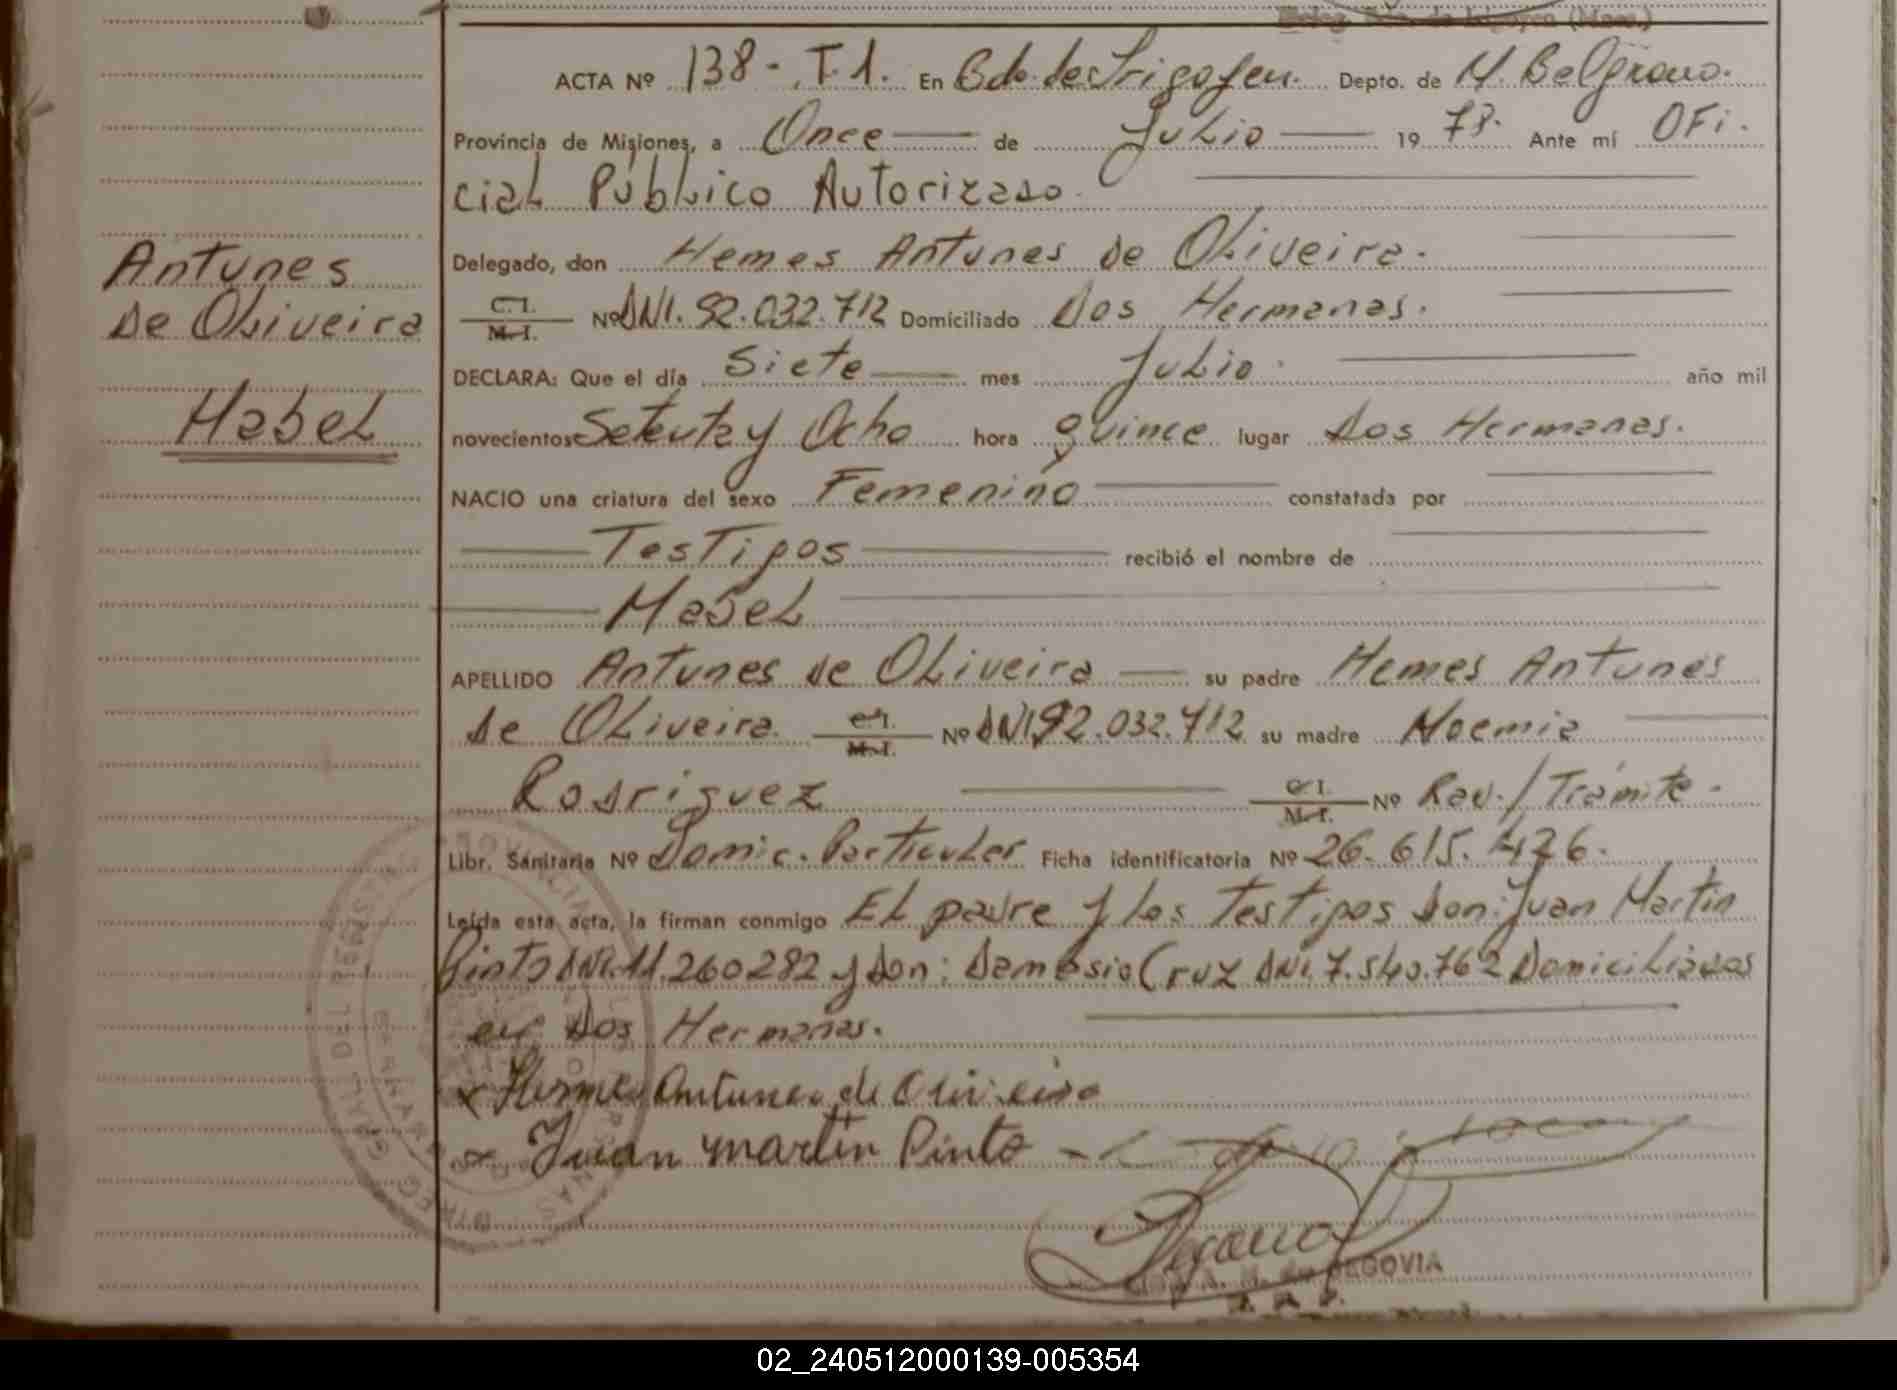 ACTA Nº 138- T.1. En Bdo. de Irigoyen. Depto. de M. Belgrano.
Provincia de Misiones, a Once de Julio 1978. Ante mí OFi-
cial Público Autorizado.
Antunes
de Oliveira
Mabel
Delegado, don Hemes Antunes de Oliveira.
C.I.
M.I. Nº DNI. 92.032.712 Domiciliado Dos Hermanas.
DECLARA: Que el día Siete mes Julio. año mil
novecientos Setenta y Ocho hora quince lugar Dos Hermanas.
NACIO una criatura del sexo Femenino constatada por
Testigos recibió el nombre de
Mabel
APELLIDO Antunes de Oliveira su padre Hemes Antunes
de Oliveira. C.I. M.I. Nº DNI 92.032.712 su madre Noemia
Rodriguez C.I. M.I. Nº Rad./Tramite.
Libr. Sanitaria Nº Domic. Particular Ficha identificatoria Nº 26.615.426.
Leída esta acta, la firman conmigo El padre y los Testigos don: Juan Martin
Pinto DNI. 11.260282 y don: Damasio Cruz DNI. 7.540.762 Domiciliados
en Dos Hermanas.
x Herme Antunes de Oliveira
x Juan martin Pinto -
SEGOVIA
02_240512000139-005354